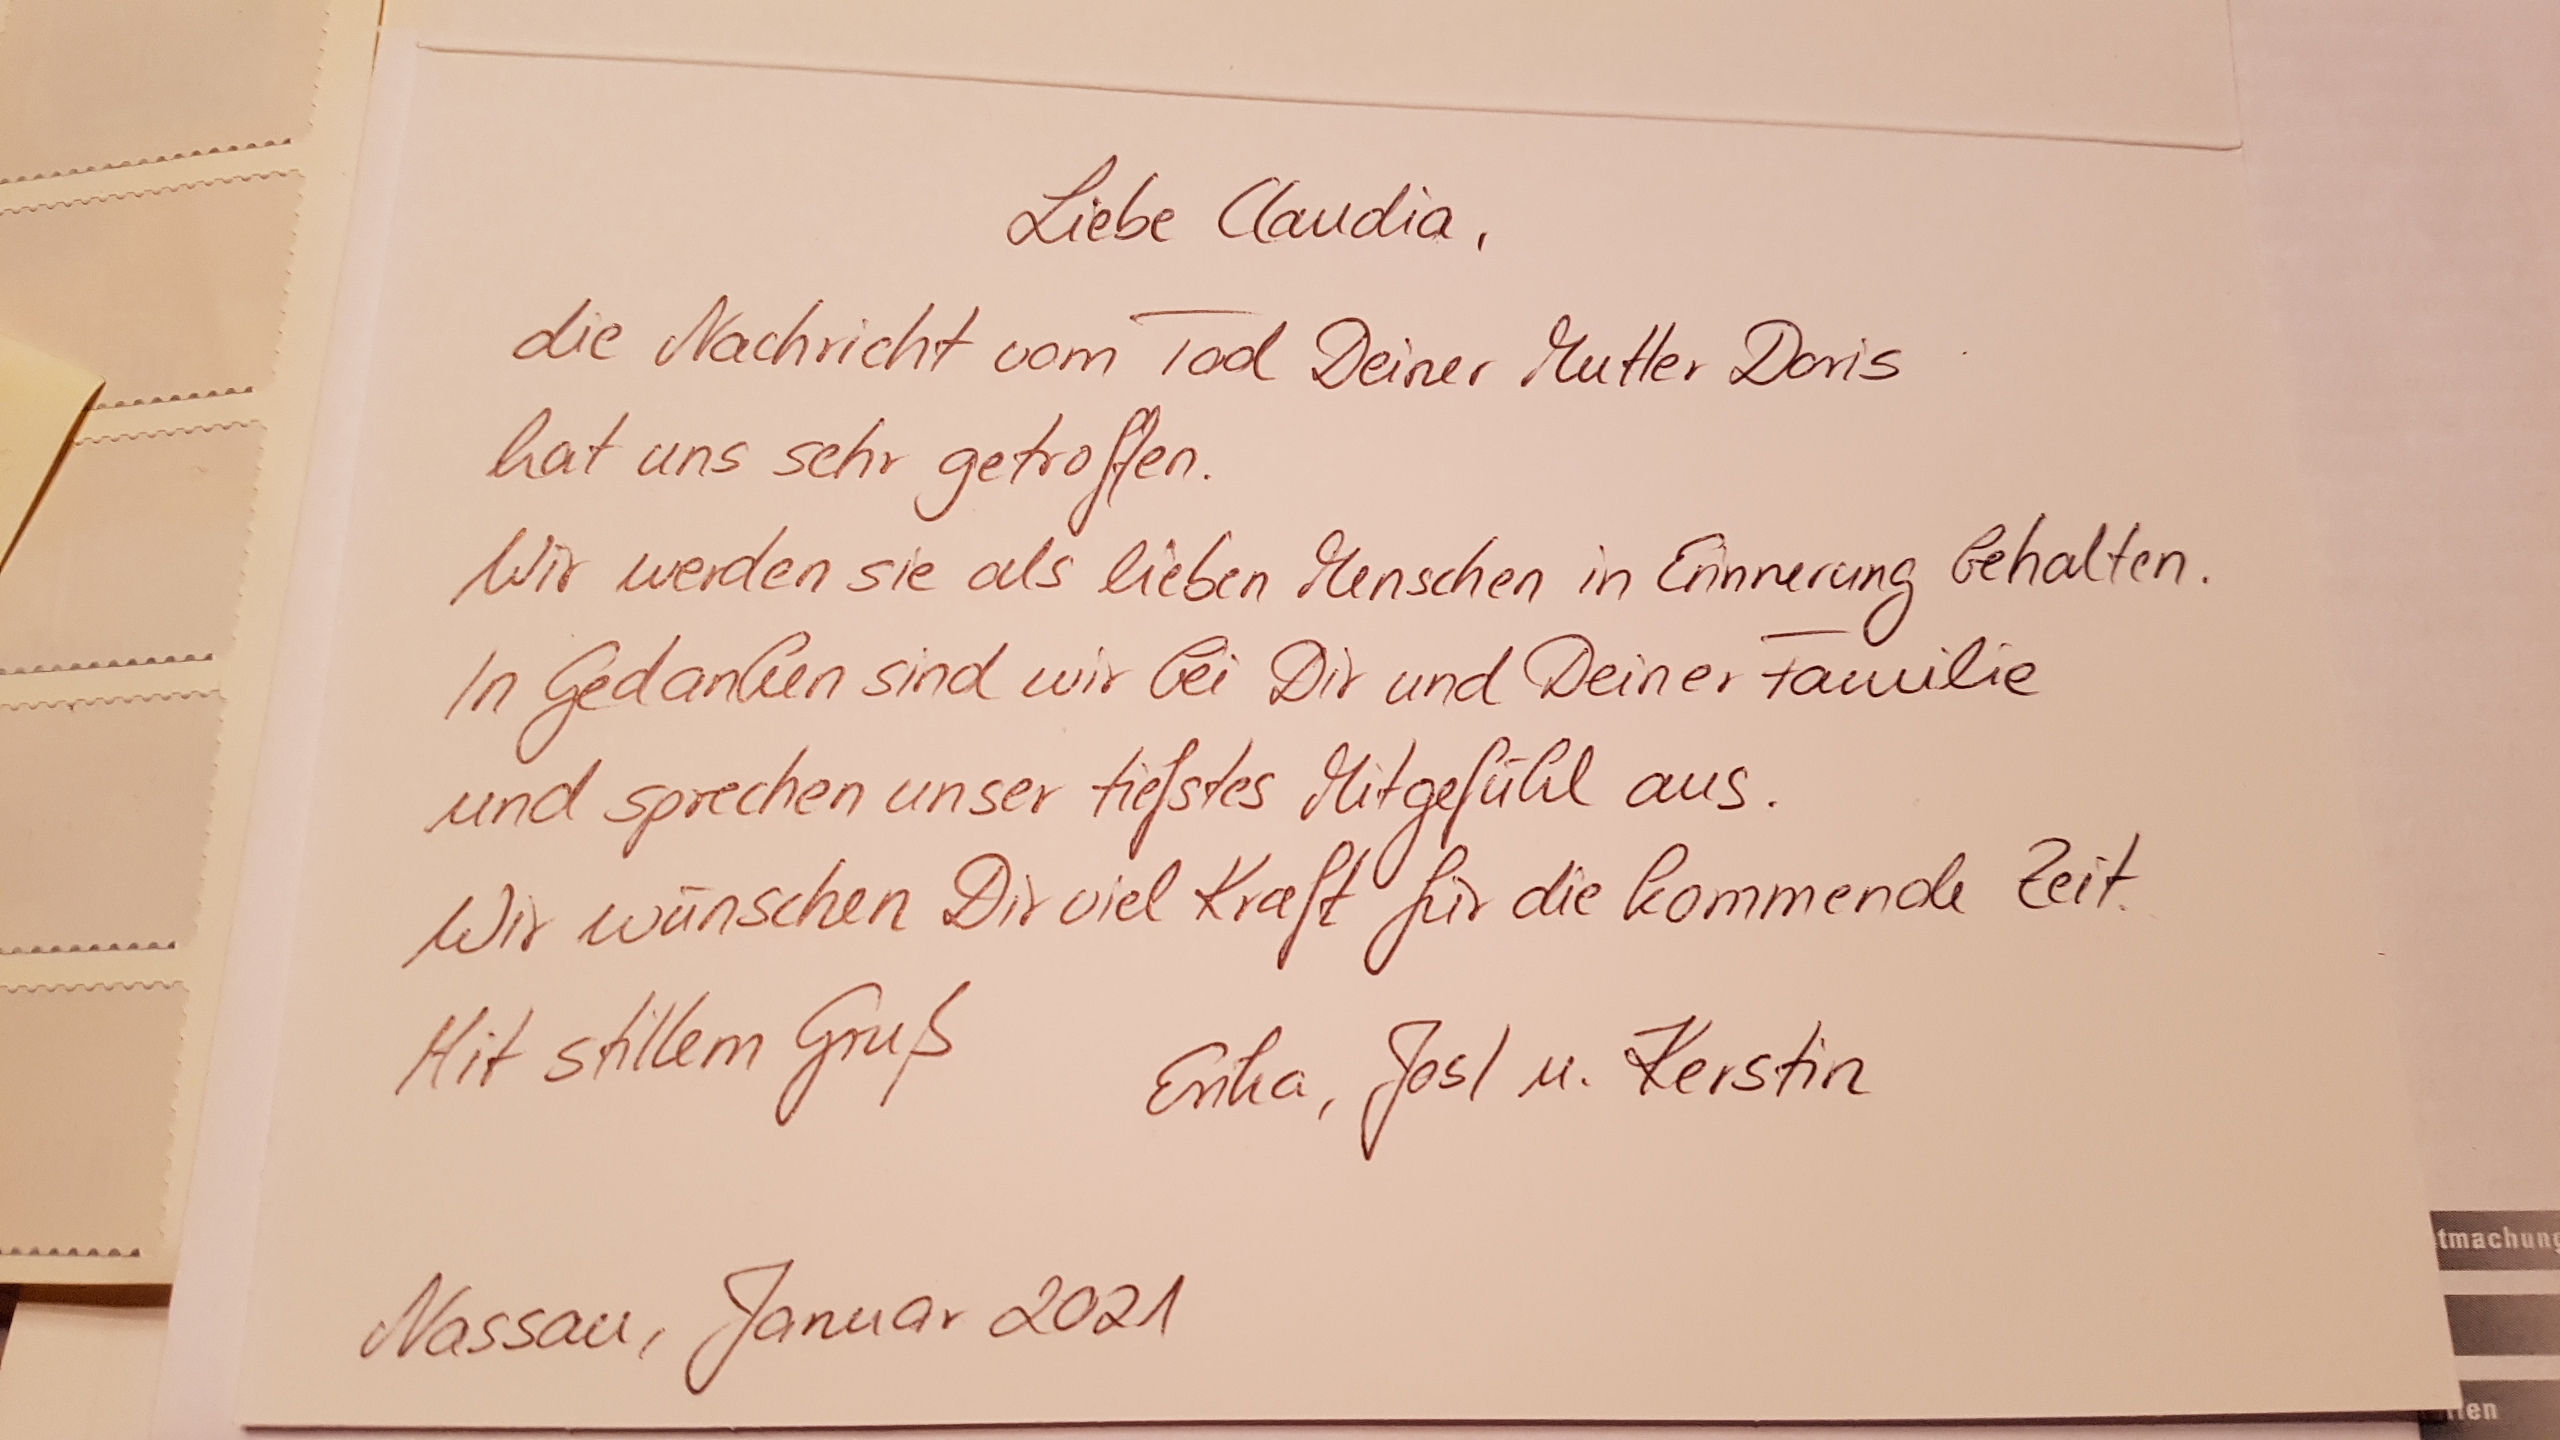 Liebe Claudia,
die Nachricht vom Tod Deiner Mutter Doris
hat uns sehr getroffen.
Wir werden sie als lieben Menschen in Erinnerung behalten.
In Gedanken sind wir bei Dir und Deiner Familie
und sprechen unser tiefstes Mitgefühl aus.
Wir wünschen Dir viel Kraft für die kommende Zeit.
Mit stillem Gruß
Erika, Josl u. Kerstin
Nassau, Januar 2021
tmachung